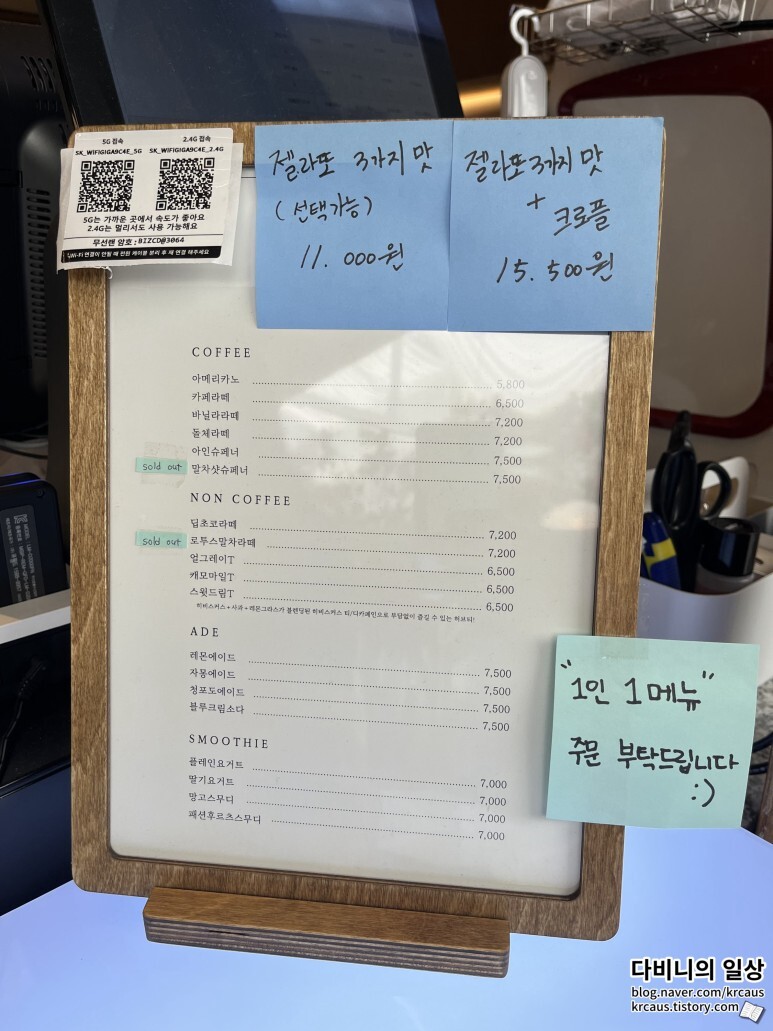 5G 접속 2.4G 접속
SK_WIFIGIGA9C4E_5G SK_WIFIGIGA9C4E_2.4G
5G는 가까운 곳에서 속도가 좋아요
2.4G는 멀리서도 사용 가능해요
무선랜 암호 : BIZCD@3064
Wi-Fi 연결이 안될 때 전원 케이블 분리 후 재 연결 해주세요
젤라또 3가지 맛
(선택가능)
11.000원
젤라또3가지 맛
+
크로플
15.500원
COFFEE
아메리카노 5,800
카페라떼 6,500
바닐라라떼 7,200
돌체라떼 7,200
아인슈페너 7,500
sold out 말차샷슈페너 7,500
NON COFFEE
딥초코라떼 7,200
sold out 로투스말차라떼 7,200
얼그레이T 6,500
캐모마일T 6,500
스윗드림T 6,500
히비스커스 + 사과 + 레몬그라스가 블렌딩된 히비스커스 티/디카페인으로 부담없이 즐길 수 있는 허브티!
ADE
레몬에이드 7,500
자몽에이드 7,500
청포도에이드 7,500
블루크림소다 7,500
SMOOTHIE
플레인요거트 7,000
딸기요거트 7,000
망고스무디 7,000
패션후르츠스무디 7,000
"1인 1메뉴"
주문 부탁드립니다
:)
다비니의 일상
blog.naver.com/krcaus
krcaus.tistory.com